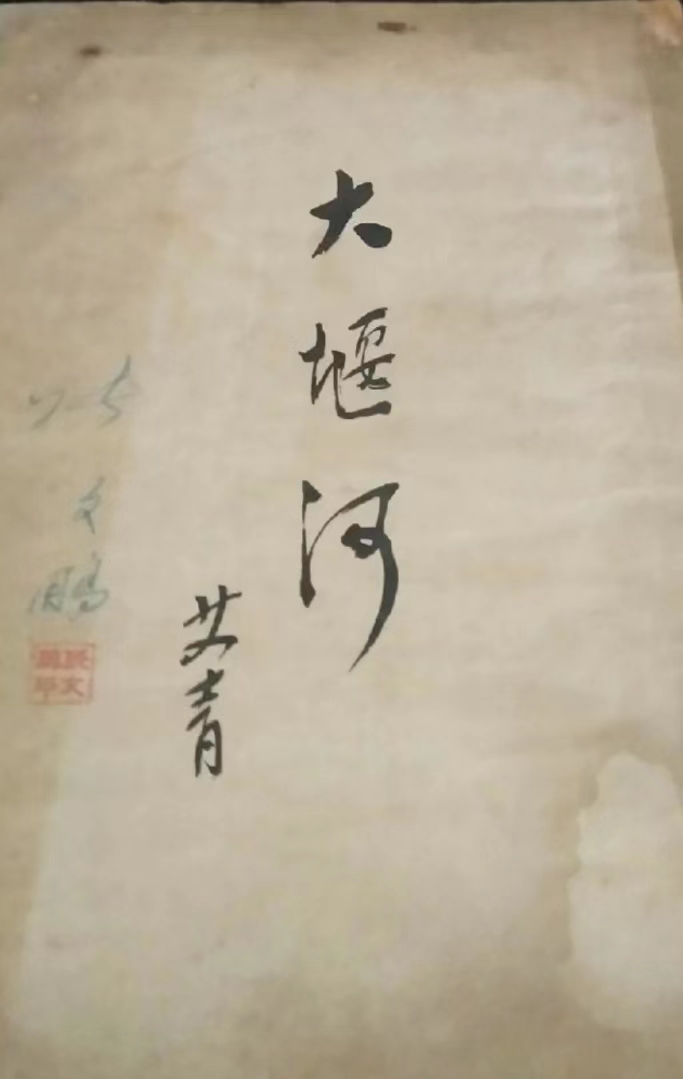 大堰河
艾青
文鹏